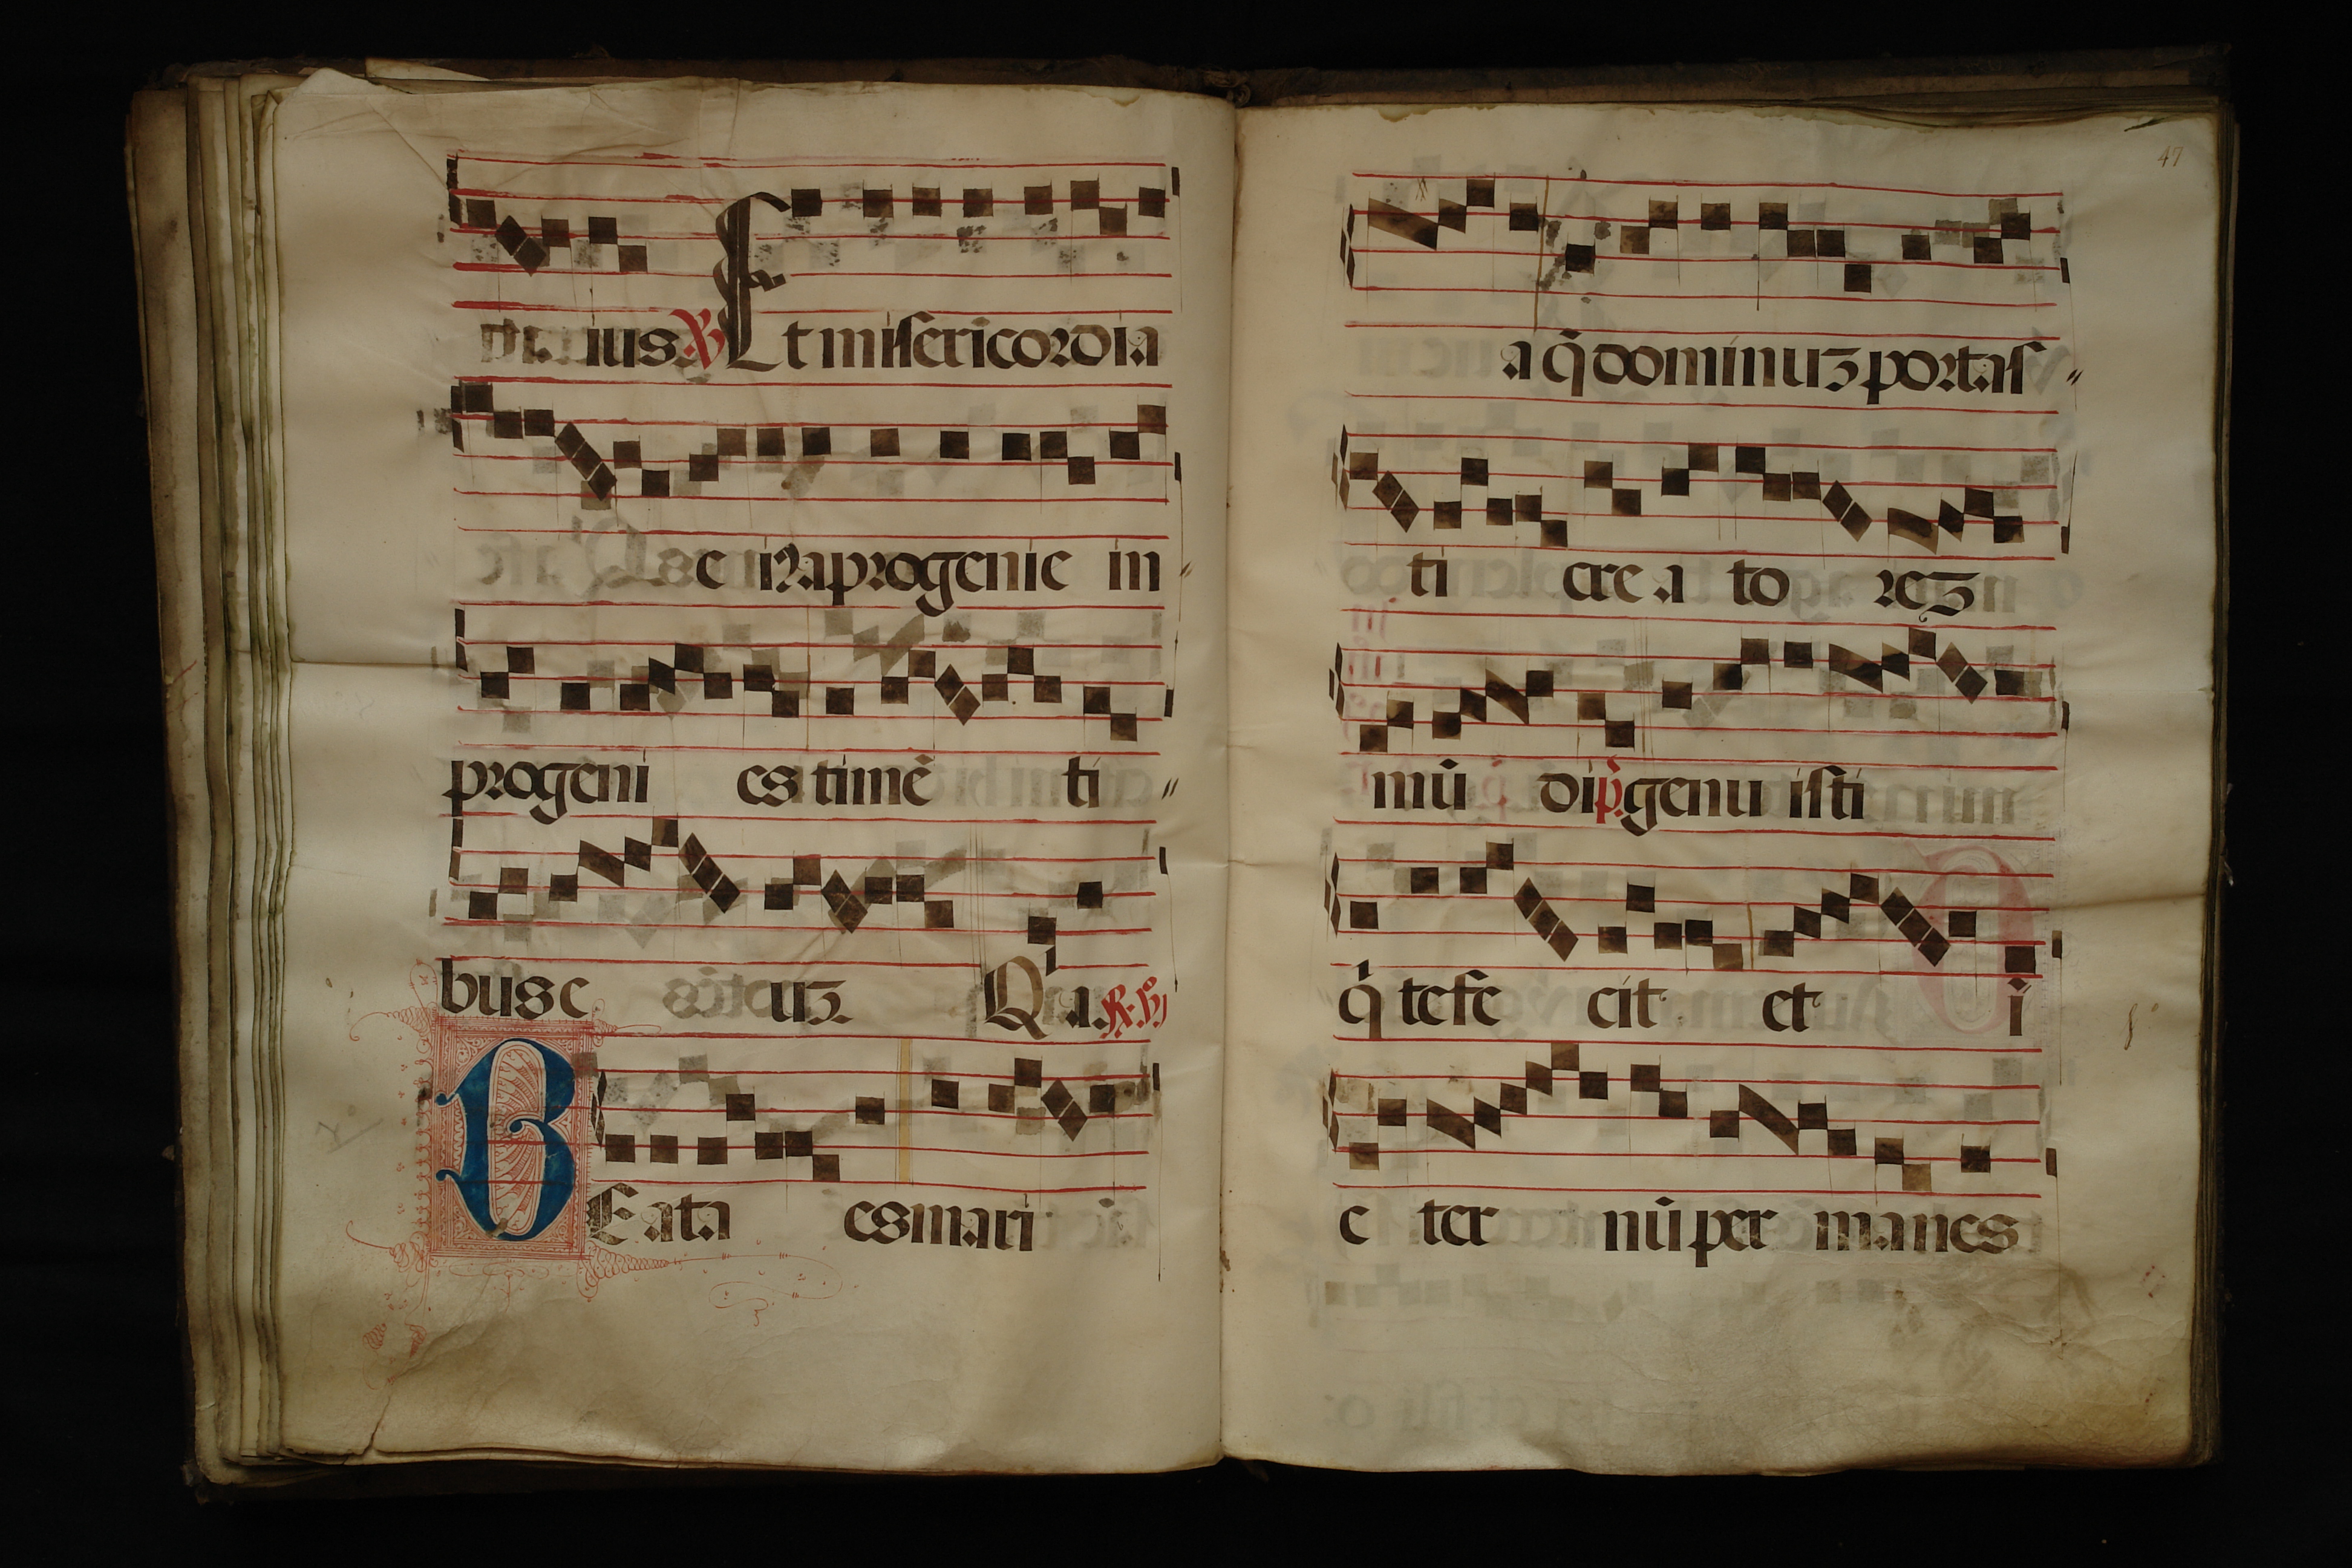 ius ℣ Et misericordia
e i ꝛ a progenie in
progeni es timē ti
bus e uʒ Qa. ℟. 
BEata es mari
47
a q̄ dominuʒ portas
ti cre a to reʒ
mū di p̄. genu isti
q̄ te fe cit et i
e ter nū per manes